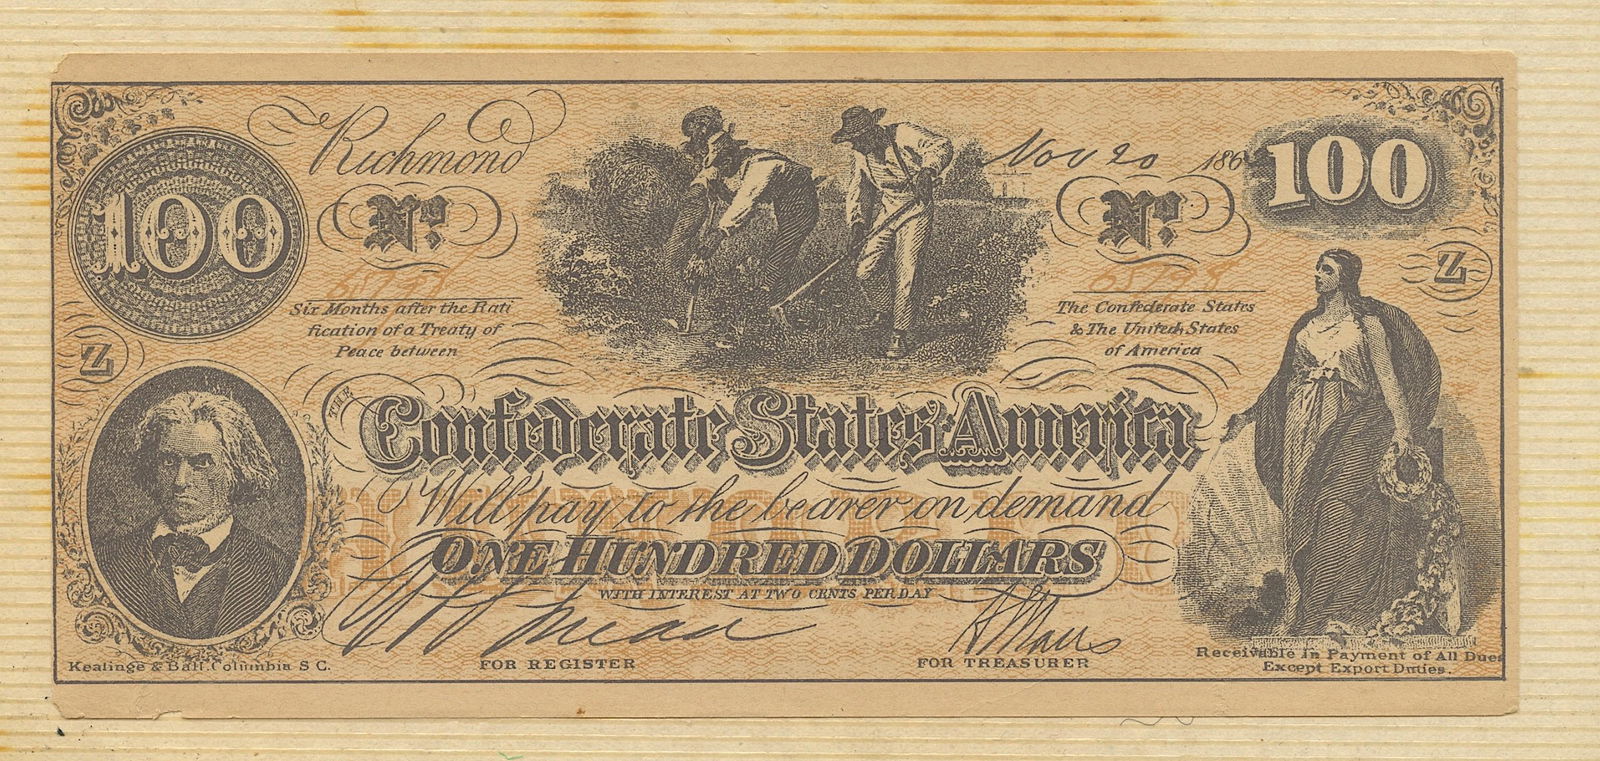 Richmond
Nov 20 186
100
100
No.
No.
65798
Six Months after the Rati
fication of a Treaty of
Peace between
The Confederate States
& The United States
of America
Z
Z
THE
Confederate States America
Will pay to the bearer on demand
ONE HUNDRED DOLLARS
WITH INTEREST AT TWO CENTS PER DAY
FOR REGISTER
FOR TREASURER
Keatinge & Ball, Columbia S C.
Receivable in Payment of All Dues
Except Export Duties.